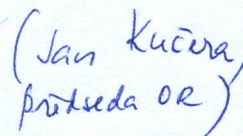 (Jan Kučera,
předseda OR)